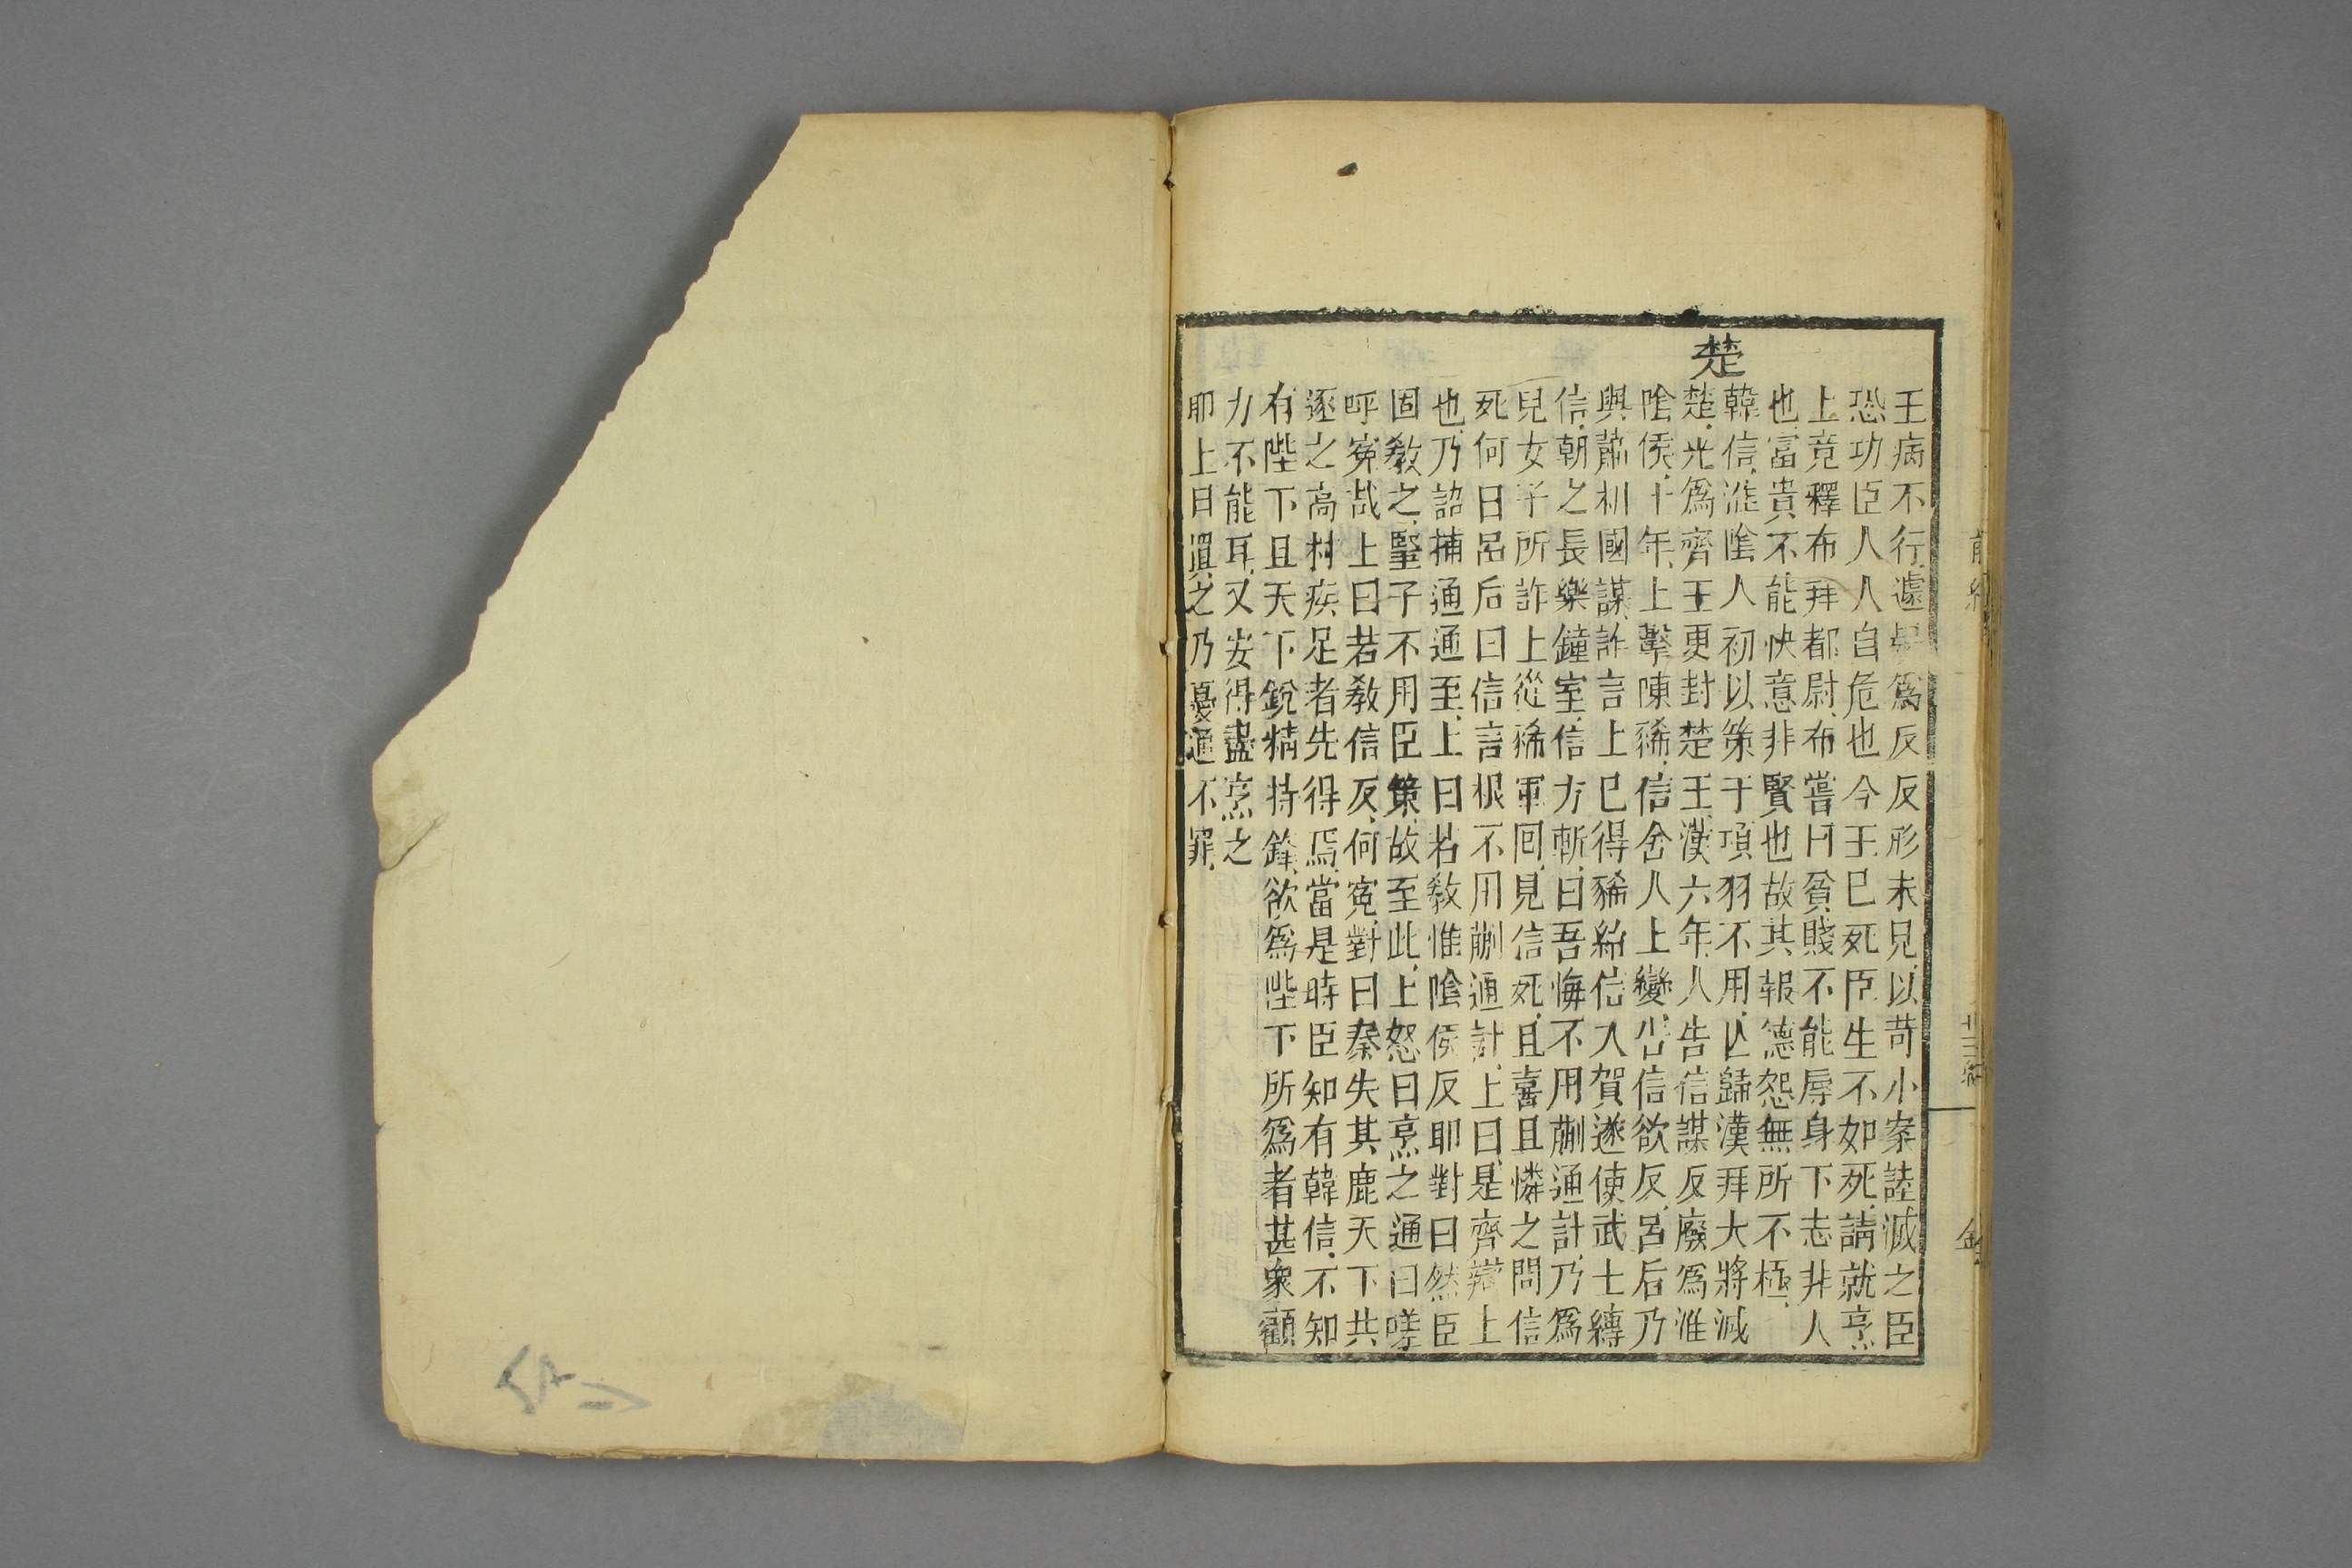 王病不行遽疑爲反反形未見以苛小案誅滅之臣
恐功臣人人自危也今王已死臣生不如死請就烹
上竟釋布拜都尉布嘗曰貧賤不能辱身下志非人
也富貴不能快意非賢也故其報德怨無所不極
楚
韓信淮陰人初以策干項羽不用亾歸漢拜大將滅
楚光爲齊王更封楚王漢六年人告信謀反廢爲淮
陰侯十年上擊陳豨信舍人上變告信欲反呂后乃
與蕭相國謀詐言上已得豨紿信入賀遂使武士縛
信朝之長樂鐘室信方斬曰吾悔不用蒯通計乃爲
兒女子所詐上從豨軍回見信死且喜且憐之問信
死何曰呂后曰信言根不用蒯通計上曰是齊辯士
也乃詔捕通通至上曰若敎惟陰侯反耶對曰然臣
固敎之豎子不用臣策故至此上怒曰烹之通曰嗟
呼寃哉上曰若敎信反何寃對曰秦失其鹿天下共
逐之高材疾足者先得焉當是時臣知有韓信不知
有陛下且天下銳精持鋒欲爲陛下所爲者甚衆顧
力不能耳又安得盡烹之
耶上曰寘之乃憂通不罪